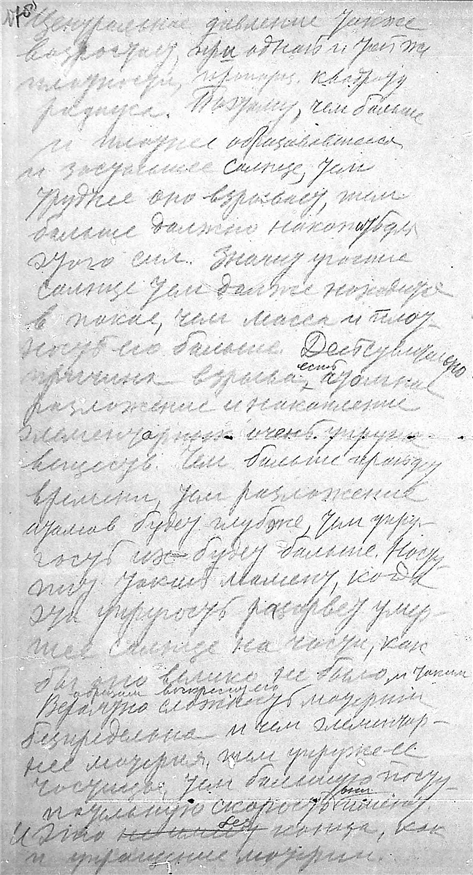 Центральное давление также
возрастает, при одной и той же
плотности, пропорц. квадрату
радиуса. Поэтому, чем больше
и плотнее образовавшееся
и застывшее солнце, тем
труднее оно взрывает, тем
больше должно накопиться для
этого сил. Значит угасшие
солнце тем дольше находится
в покое, чем масса и плот-
ность его больше. Действительно
причина взрыва есть атомное
разложение и накопление
элементарных очень упругих
веществ. Чем больше пройдет
времени, тем разложение
атомов будет глубже, тем упру-
гость их будет больше. Насту-
пит такой момент, когда
эта упругость разорвет умер-
шее солнце на части, как
бы оно велико не было, и таким
образом воскресит его
Вероятно сложность материи
беспредельна и чем элементар-
нее материя, тем упруже ее
частицы, тем большую посту-
пательную скорость они имеют
И это без конца, как
и упрощение материи.